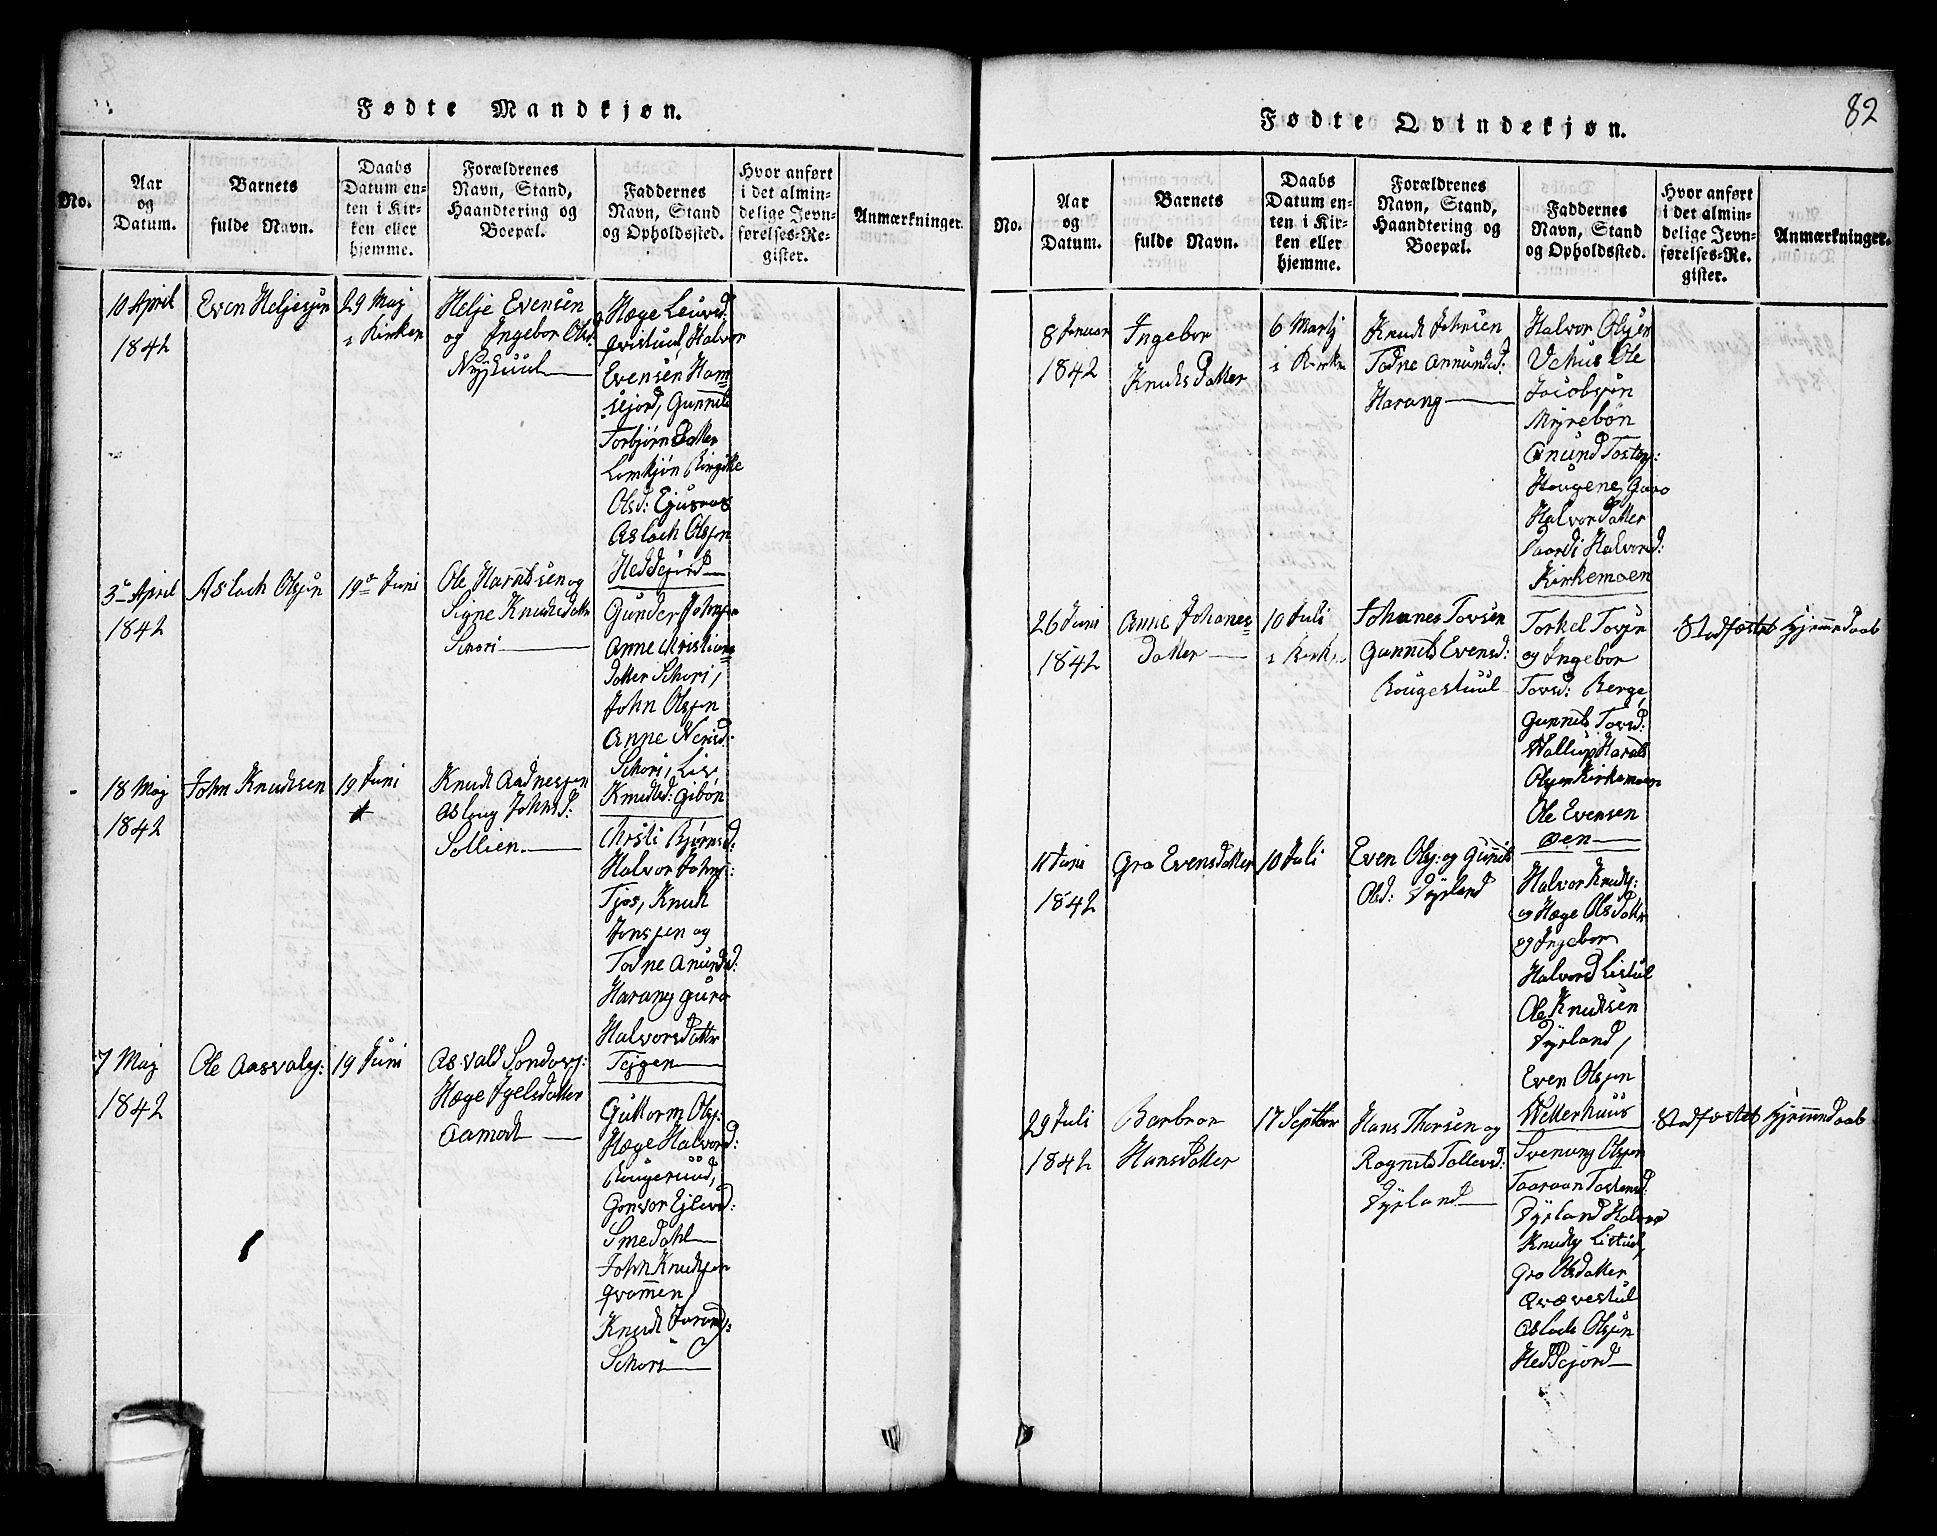 Fødte Mandkjøn.
No.
Aar
og
Datum.
Barnets
fulde Navn.
Daabs
Datum en-
ten i Kir-
ken eller
hjemme.
Forældrenes
Navn, Stand,
Haandtering og
Boepæl.
Faddernes
Navn, Stand
og Opholdssted.
Hvor anført
i det almin-
delige Jevn-
førelses-Re-
gister.
Anmærkninger.
10 April
1842
Even Heljesøn
29 Maj
i Kirken
Helje Evensen
og Ingebor Olsd:
Nystuul
Hæge Leuvd:
Qvistuul, Halvor
Evensen Ham=
sejord, Gunnild
Torbjørnsdatter
Lomkjøn Birgitte
Olsd:
Aslach Olssøn
Heddejord
3 April
1842
Aslach Olsøn
19de Juni
Ole Harildsen og
Signe Knudsdattr
Schori
Gunder Johnsen
Anne Christians=
datter Schori,
John Olssøn
Anne Nerid:
Schori, Lis,
Knudsd: Gibøn
18 Maj
1842
John Knudsen
19 Juni
Knud Aadnessøn
Asloug Johnsd:
Sollien
Christi Bjørnsd:
Halvor Johns:
Tjøs, Knud
Jonssen og
Todne Anunds:
Harang Guro
Halvorsdattr
Tejgen
7 Maj
1842
Ole Aasvalds:
19 Juni
Asvald Sondovs:
Hæge Igelsdatter
Aamodt
Guttorm Ols:
Hæge Halvord:
Rougerud,
Gonvor Ejlevd:
Smedahl
John Knudsen
Qvammen
Knud
Schori
82
Fødte Qvindekjøn.
No.
Aar
og
Datum.
Barnets
fulde Navn.
Daabs
Datum en-
ten i Kir-
ken eller
hjemme.
Forældrenes
Navn, Stand,
Haandtering og
Boepæl.
Faddernes
Navn, Stand
og Opholdssted.
Hvor anført
i det almin-
delige Jevn-
førelses-Re-
gister.
Anmærkninger.
8 Januar
1842
Ingebor
Knudsdatter
6 Martj
i Kirken
Knud Johnsen
Todne Annundsd:
Harang
Halvor Olssen
Vehus Ole
Jacobsøn
Myrebøn
Anund Tostens:
Hougene, Guro
Halvordatter
Paardi Halvord:
Kirkemoen
26 Juni
1842
Anne Johanes=
datter
10 Juli
i Kirken
Johannes Tovsen
Gunnild Evensd:
Rougestuul
Torkel Tovsen
og Ingebor
Tovsd: Berge,
Gunnild Tovsd:
Wallup, Harald
Olsen Kirkemoen
Ole Evensen
Øen
Stadfæstet Hjemmedaab
11 Juni
1842
Gro Evensdatter
10 Juli
Even Ols: og Gunild
Olsd: Dyrland
Halvor Knuds:
og Hæge Olsdattr
og Ingebor
Halvord Listul
Ole Knudsen
Dyrland,
Even Olssen
Wetterhuus
29 Juli
1842
Barbroe
Hansdatter
17 Septbr
Hans Thorsen og
Ragnild Tollevsd:
Dyrland
Svenung Olssøn
Taaraan Tostensd:
Dyrland Halvor
Knuds Listul,
Gro Olsdatter
Qvævestul
Aslach Olsøn
Heddejord
Stadfæstet Hjemmedaab